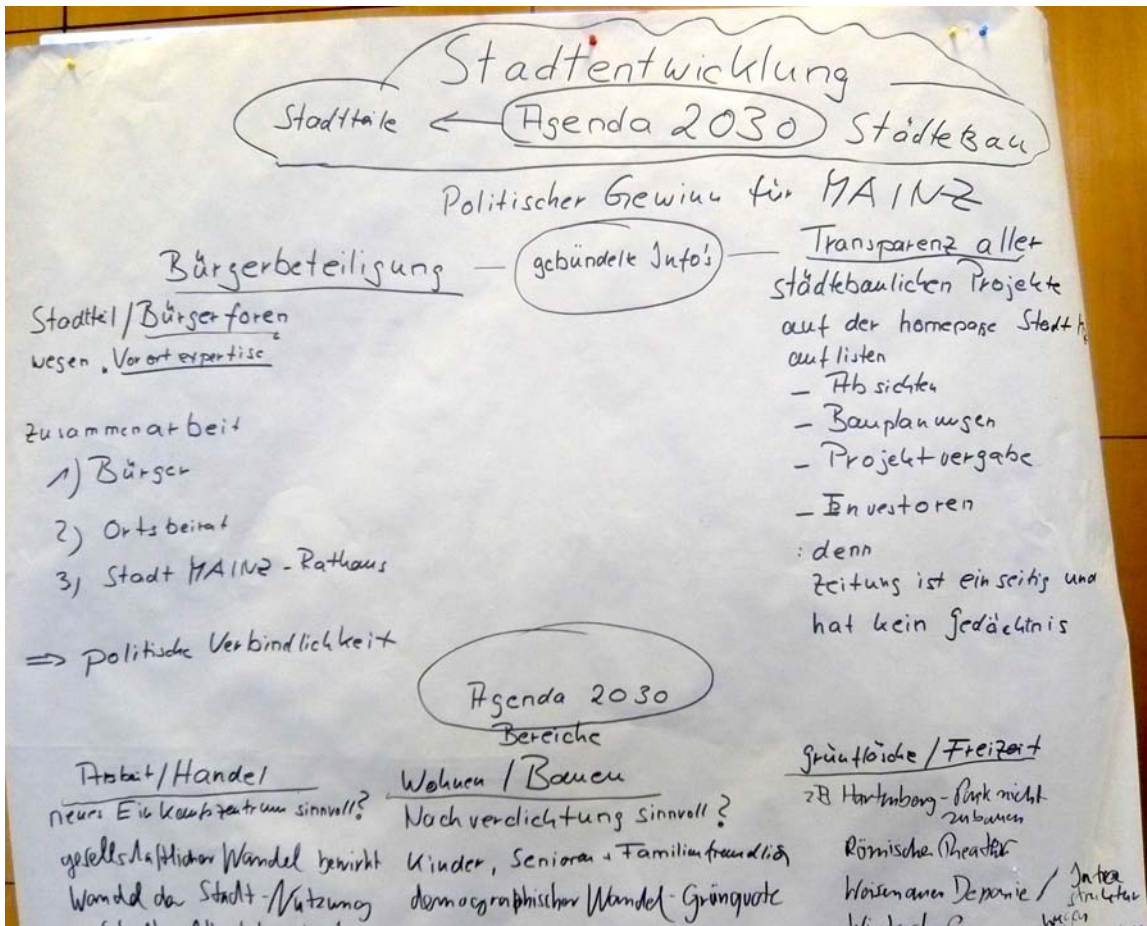 Stadtentwicklung
Stadtteile ← Agenda 2030 Städtebau
Politischer Gewinn für MAINZ
Bürgerbeteiligung — gebündelte Info's — Transparenz aller
städtebaulichen Projekte
auf der homepage Stadt
auflisten
- Absichten
- Bauplanungen
- Projektvergabe
- Investoren
: denn
Zeitung ist einseitig und
hat kein Gedächtnis
Stadtteil/Bürgerforen
wegen "Vorortexpertise"
Zusammenarbeit
1) Bürger
2) Ortsbeirat
3) Stadt MAINZ-Rathaus
⇒ politische Verbindlichkeit
Agenda 2030
Bereiche
Arbeit/Handel
neues Einkaufszentrum sinnvoll?
gesellschaftlicher Wandel bewirkt
Wandel der Stadt-Nutzung
Wohnen / Bauen
Nachverdichtung sinnvoll?
Kinder, Senioren + Familienfreundlich
demographischer Wandel - Grünquote
Grünfläche / Freizeit
zB Hartenberg-Park nicht
zubauen
Römische Theater
Weisenauer Deponie /